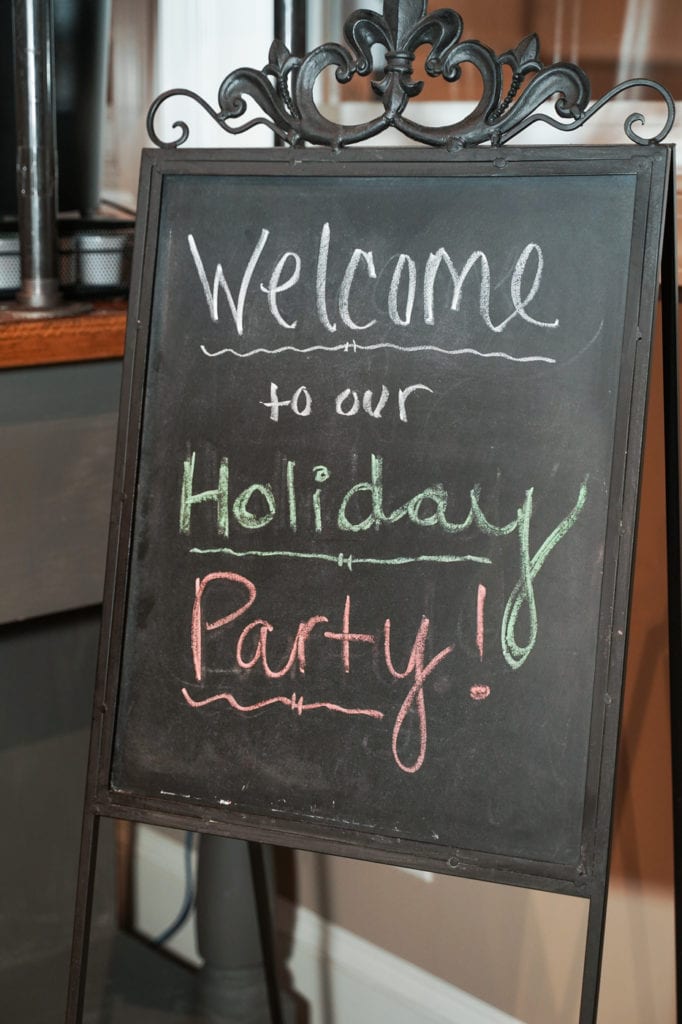 Welcome
to our
Holiday
Party!